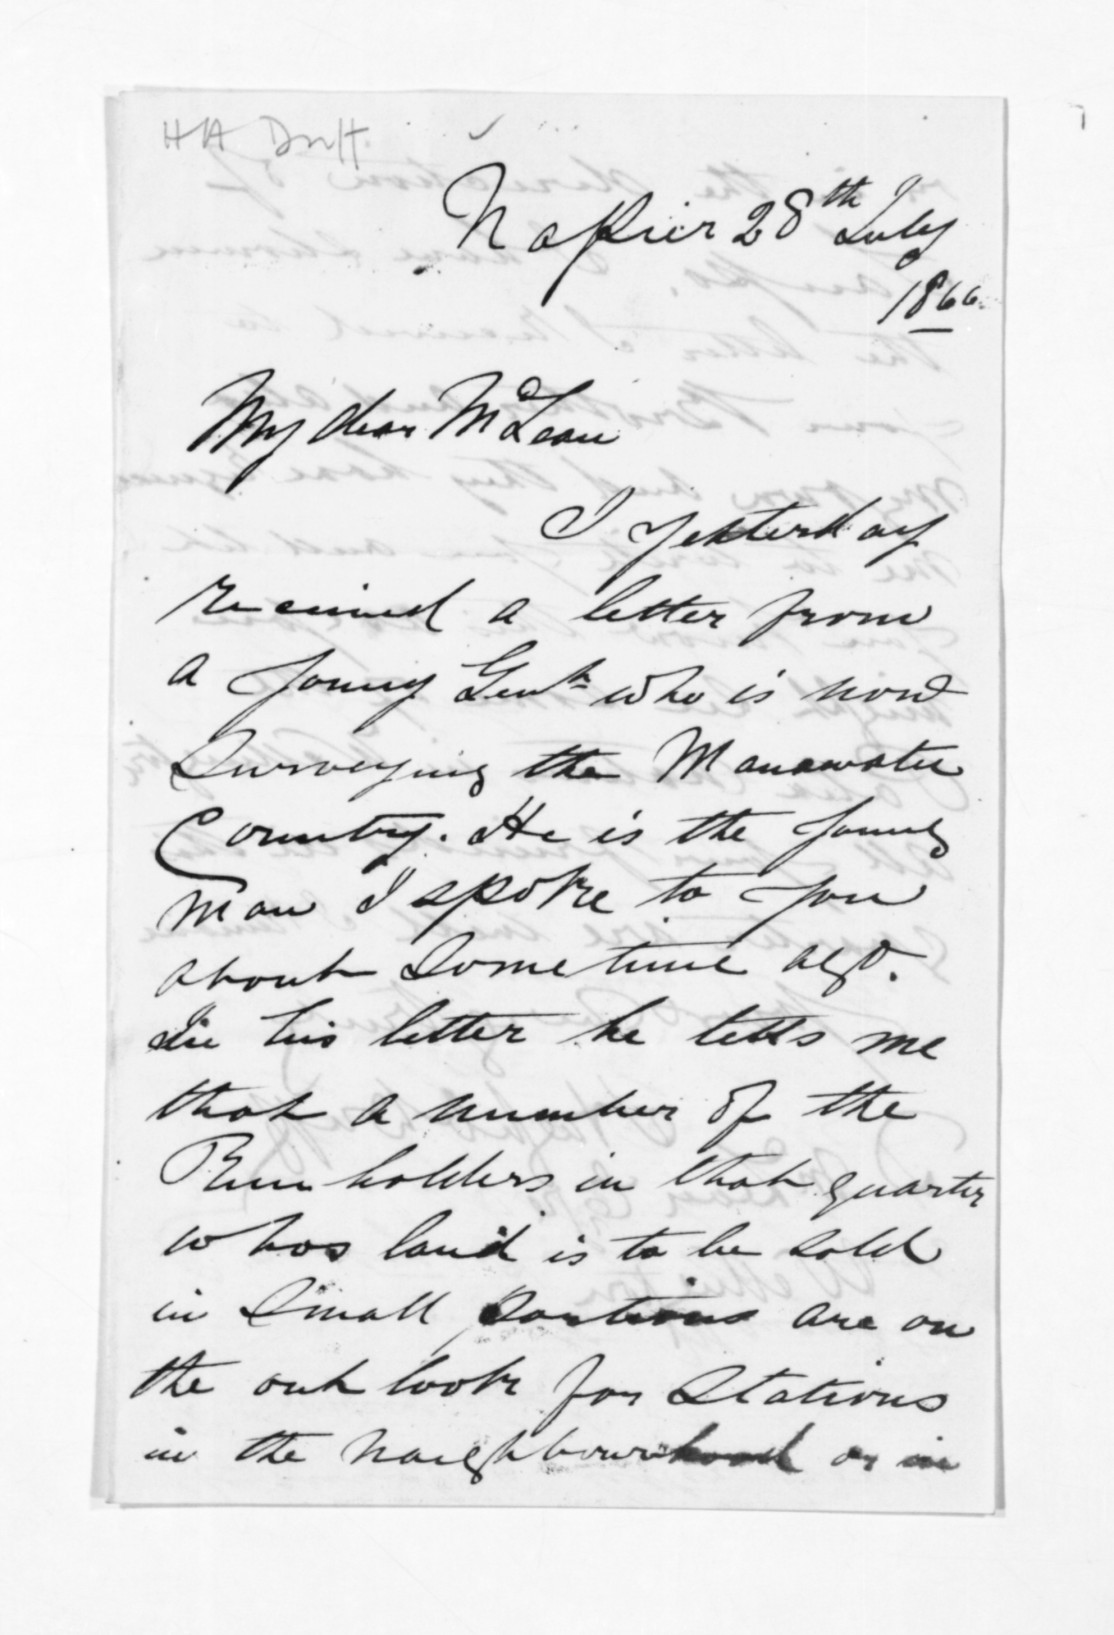 H A Duff
Napier 28th July
1866
My dear McLean
I Yesterday
received a letter from
a young Gentn who is now
Surveying the Manawatu
Country. He is the young
man I spoke to you
about Sometime ago.
In his letter he tells me
that a number of the
Run holders in that quarter
whos land is to be sold
in Small portions are on
the out look for Stations
in the naighbourhood or in